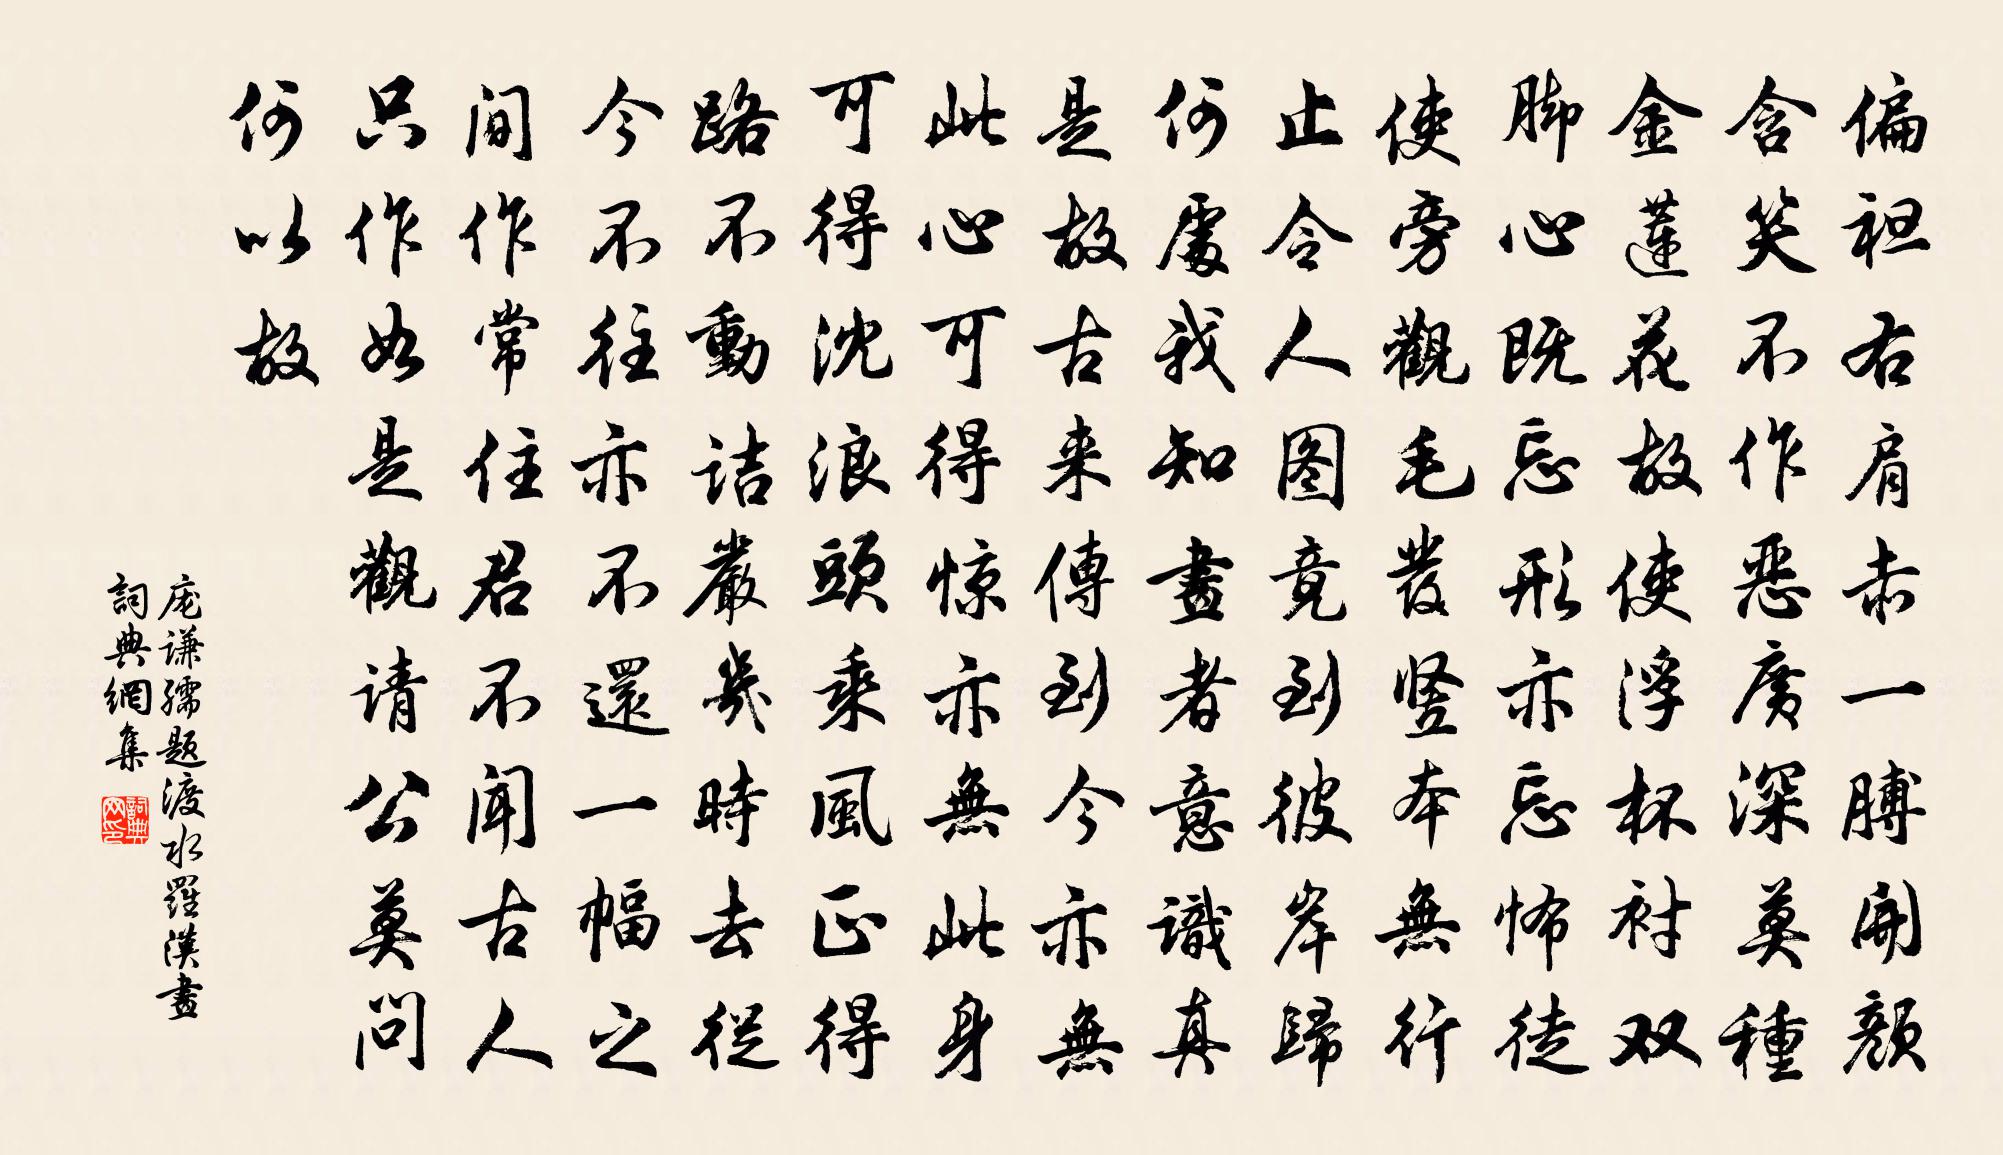 偏袒右肩赤一膊開顏
含笑不作惡廣深莫種
金蓮花故使浮杯衬双
脚心既忘形亦忘怖徒
使旁觀毛發竖本無行
止令人图竟到彼岸歸
何處我知畫者意識真
是故古来傳到今亦無
此心可得惊亦無此身
可得沈浪頭乘風正得
路不動詰嚴幾時去從
今不往亦不還一幅之
间作常住君不闻古人
只作如是觀请公莫問
何以故
庞谦孺题渡水羅漢畫
詞典網集
詞典网印